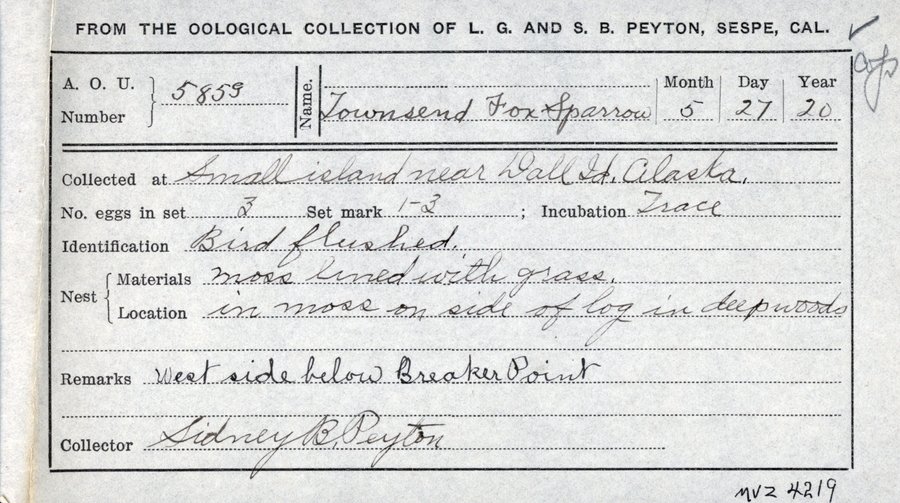 FROM THE OOLOGICAL COLLECTION OF L. G. AND S. B. PEYTON, SESPE, CAL.
A. O. U. Number 5859 Name. Townsend Fox Sparrow Month 5 Day 27 Year 20
Collected at Small island near Dall Id. Alaska.
No. eggs in set 3 Set mark 1-3 ; Incubation Trace
Identification Bird flushed.
Nest Materials moss lined with grass.
Location in moss on side of log in deep woods
Remarks West side below Breaker Point
Collector Sidney B. Peyton
MVZ 4219